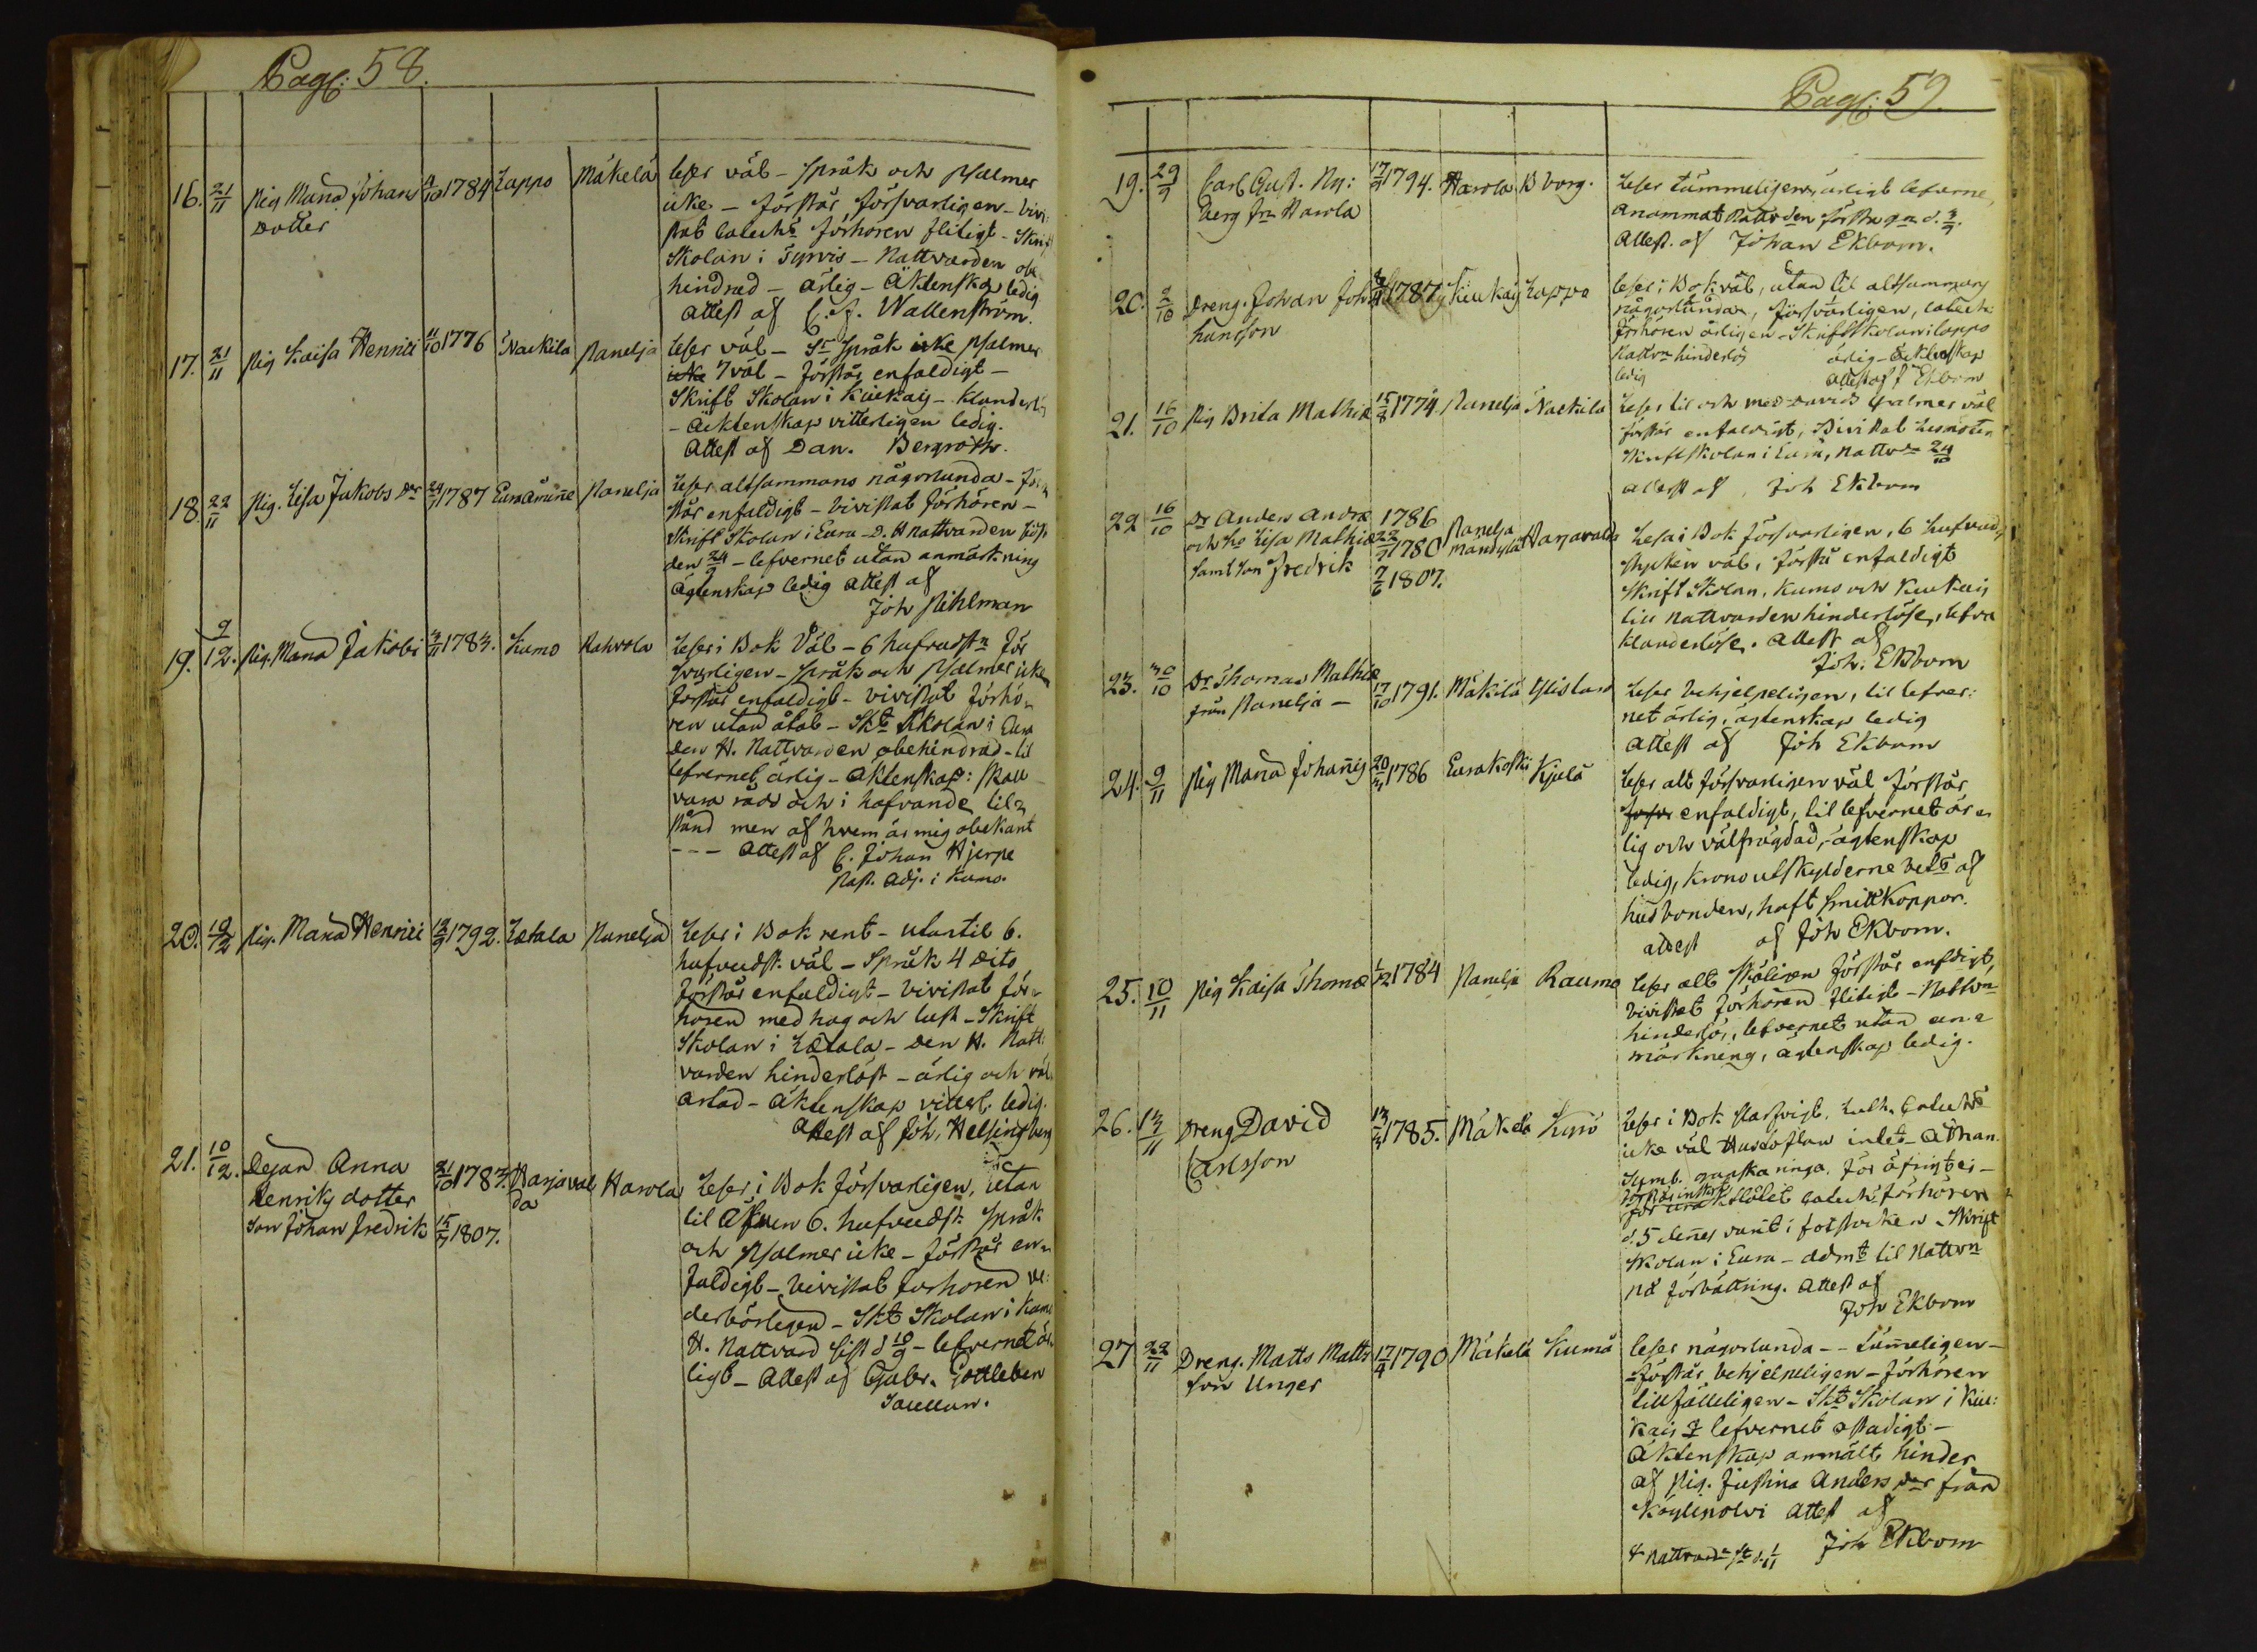 Pag: 58.
16. 21/11 Pig Maria Johans 1784 Lappo Mäkelä leser väl - språk och psalmer
Dotter icke - förstår försvarligen - bivi-
stat catech förhören flitigt - Skrift
Skolan i Tyrvis - Nattvarden obe
hindrad - ärlig - Äktenskap ledig
attest af C. J. Wallenström.
17. 21/11 Pig Kaisa Henrici 11/10 1776 Naekila Panelja leser väl - språk icke psalmer
väl - förstår enfaldigt -
Skrift Skolan i Kiukais - klanderlös
- äcktenskap vitterligen ledig.
Attest af Dan. Bergroth.
18. 22/11 Pig. Lisa Jakobs dr 1787 Euraåminne Panelja leser altsammans någorlunda - för
står enfaldigt - bivistat förhören -
Skrift Skolan i Eura - D. H Nattvarden
den 24/9 - lefvernet utan anmärkning
ägtenskap ledig attest af
Joh Pihlman
19. 9/12. Pig. Maria Jakobi 3/11 1783. Kumo Kahvola Leser i Bok väl - 6 hufvudstn för
svarligen - språk och psalmer icke
förstår enfaldigt - bivistat förhö-
ren utan åtal - Skt Skolan i Eura
den H. Nattvarden obehindrad - til
lefvernet ärlig - Äktenskap: skall
vara råd och i hafvande til-
stånd men af hvem är mig obekant
--- attest af C. Johan Hjerpe
Past. Adj. i Kumo.
20. 10/12 Pig. Maria Henrici 12/9 1792. Letala Panelja Leser i Bok rent - utantil 6.
hufvudst. väl - Språk 4 Dito
förstår enfaldigt - bivistat för-
hören med hog och lust - Skrift
Skolan i Letala - den H. Natt
varden hinderlöst - ärlig och väl
artad - äktenskap vitterl. ledig.
Attest af Joh. Helsingberg
21. 10/12. Dejan Anna 21/10 1783. Harjaval Harola Leser i Bok försvarligen, utan
Henriks dotter da til även 6. hufvudst. språk
son Johan Fredrik 15/7 1807. och psalmer icke - förstår en-
faldigt - bivistat förhören ve-
derbörligen - Skt Skolan i Kumo
H. Nattvard sist d 10/9 - lefvernet är
ligt - Attest af Gabr. Gottleben
Pag: 59.
19. 29/9 Carl Gust. Ny: 17/9 1794. Harola Borg. Leser tämmeligen, ärligt lefverne,
berg frn Harola anammat Nattvden första gn d. 3/9.
Attest. af Johan Ekbom.
20. 2/10 Dreng. Johan Jo 1787 Kiukais Lappo leser i Bok väl, utan til altsammans
hansson någorlunda, försvarligen, catech:
förhören årligen - Skriftskolan i Lappo
Nattvn hinderlös ärlig - äcktenskap
ledig attest af J Ekbom
21. 16/10 Pig Brita Mathiæ 15/8 1774 Panelja Naekila Leser til och med Davids Psalmer väl
förstår enfaldigt, Bivistat
Skriftskolan i Eura, Nattvdn 24/10
attest af Joh Ekbom
22 16/10 Dr Anders Andræ 1786
och ho Lisa Mathiæ 22/7 1780 Panelja Mandyla Harjavalda Lesa i Bok försvarligen, 6 hufvud
samt son Fredrik 7/6 1807. stycken väl, förstå enfaldigt
Skrift Skolan, Kumo och Kiukais
till Nattvarden hinderlöse, lefva
klanderlöse. Attest af
Joh: Ekbom
23. 30/10 Dr Thomas Mathiæ 17/10 1791. Mäkilä Ylistaro Leser behjelpeligen, til lefver:
från Panelja - net ärlig, ägtenskap ledig
Attest af Joh Ekbom
24. 9/11 Pig Maria Johannis 20/3 1786 Eurakoski Kjulå leser alt försvarligen väl förstår
enfaldigt, til lefvernet är
lig och välfrägdad, ägtenskap
ledig, Kronoutskylderne bet af
husbonden, haft Smittkoppor.
attest af Joh Ekbom.
25. 10/11 Pig Kaisa Thomæ 1/12 1784 Panelja Raumo leser alt skäligen förstår enfldigt
bivistat förhören flitigt - Nattvn
hinderlös, lefvernet utan an-
märkning, ägtenskap ledig.
26. 13/11 Dreng David 13/3 1785. Mäkelä Kyrö Leser i Bok slarfvigt. Luth. Cateches
Carlsson icke väl Hustaflan intet - Athan.
Symb. ganska ringa. för öfrigt ej -
catech förhören
d. 5 dennes varit i fotstocken - Skrift
skolan i Eura - admt til Nattvn
på förbättring. Attest af
Joh Ekbom
27 22/11 Dreng. Matts Matts 17/4 1790 Mäkelä Kumå leser någorlunda -- tämeligen -
son Unger förstår behjelpeligen - förhören
tillfälleligen - Skt Skolan i Kiu:
kais lefvernet ostadigt -
Äktenskap anmält hinder
af Pig. Justina Anders dr från
Köyliöpolvi attest af
Joh Ekbom